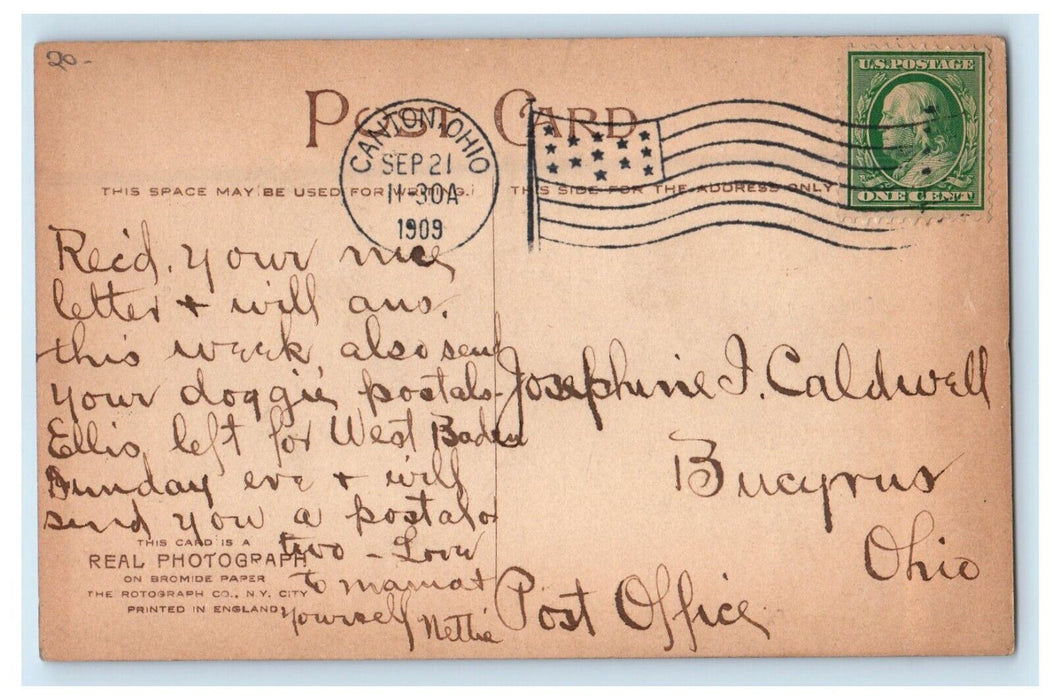 20-
POST CARD
THIS SPACE MAY BE USED FOR WRITING.
THIS SIDE FOR THE ADDRESS ONLY
CANTON, OHIO
SEP 21
11-30A
1909
U.S. POSTAGE
ONE CENT
Rec'd. your nice
letter + will ans.
this week also send
your doggie postals-
Ellis left for West Baden
Sunday eve + will
send you a postal or
two - Love
to mama +
yourself Nettie
Josephine I. Caldwell
Bucyrus
Ohio
Post Office
THIS CARD IS A
REAL PHOTOGRAPH
ON BROMIDE PAPER
THE ROTOGRAPH CO., N.Y. CITY
PRINTED IN ENGLAND